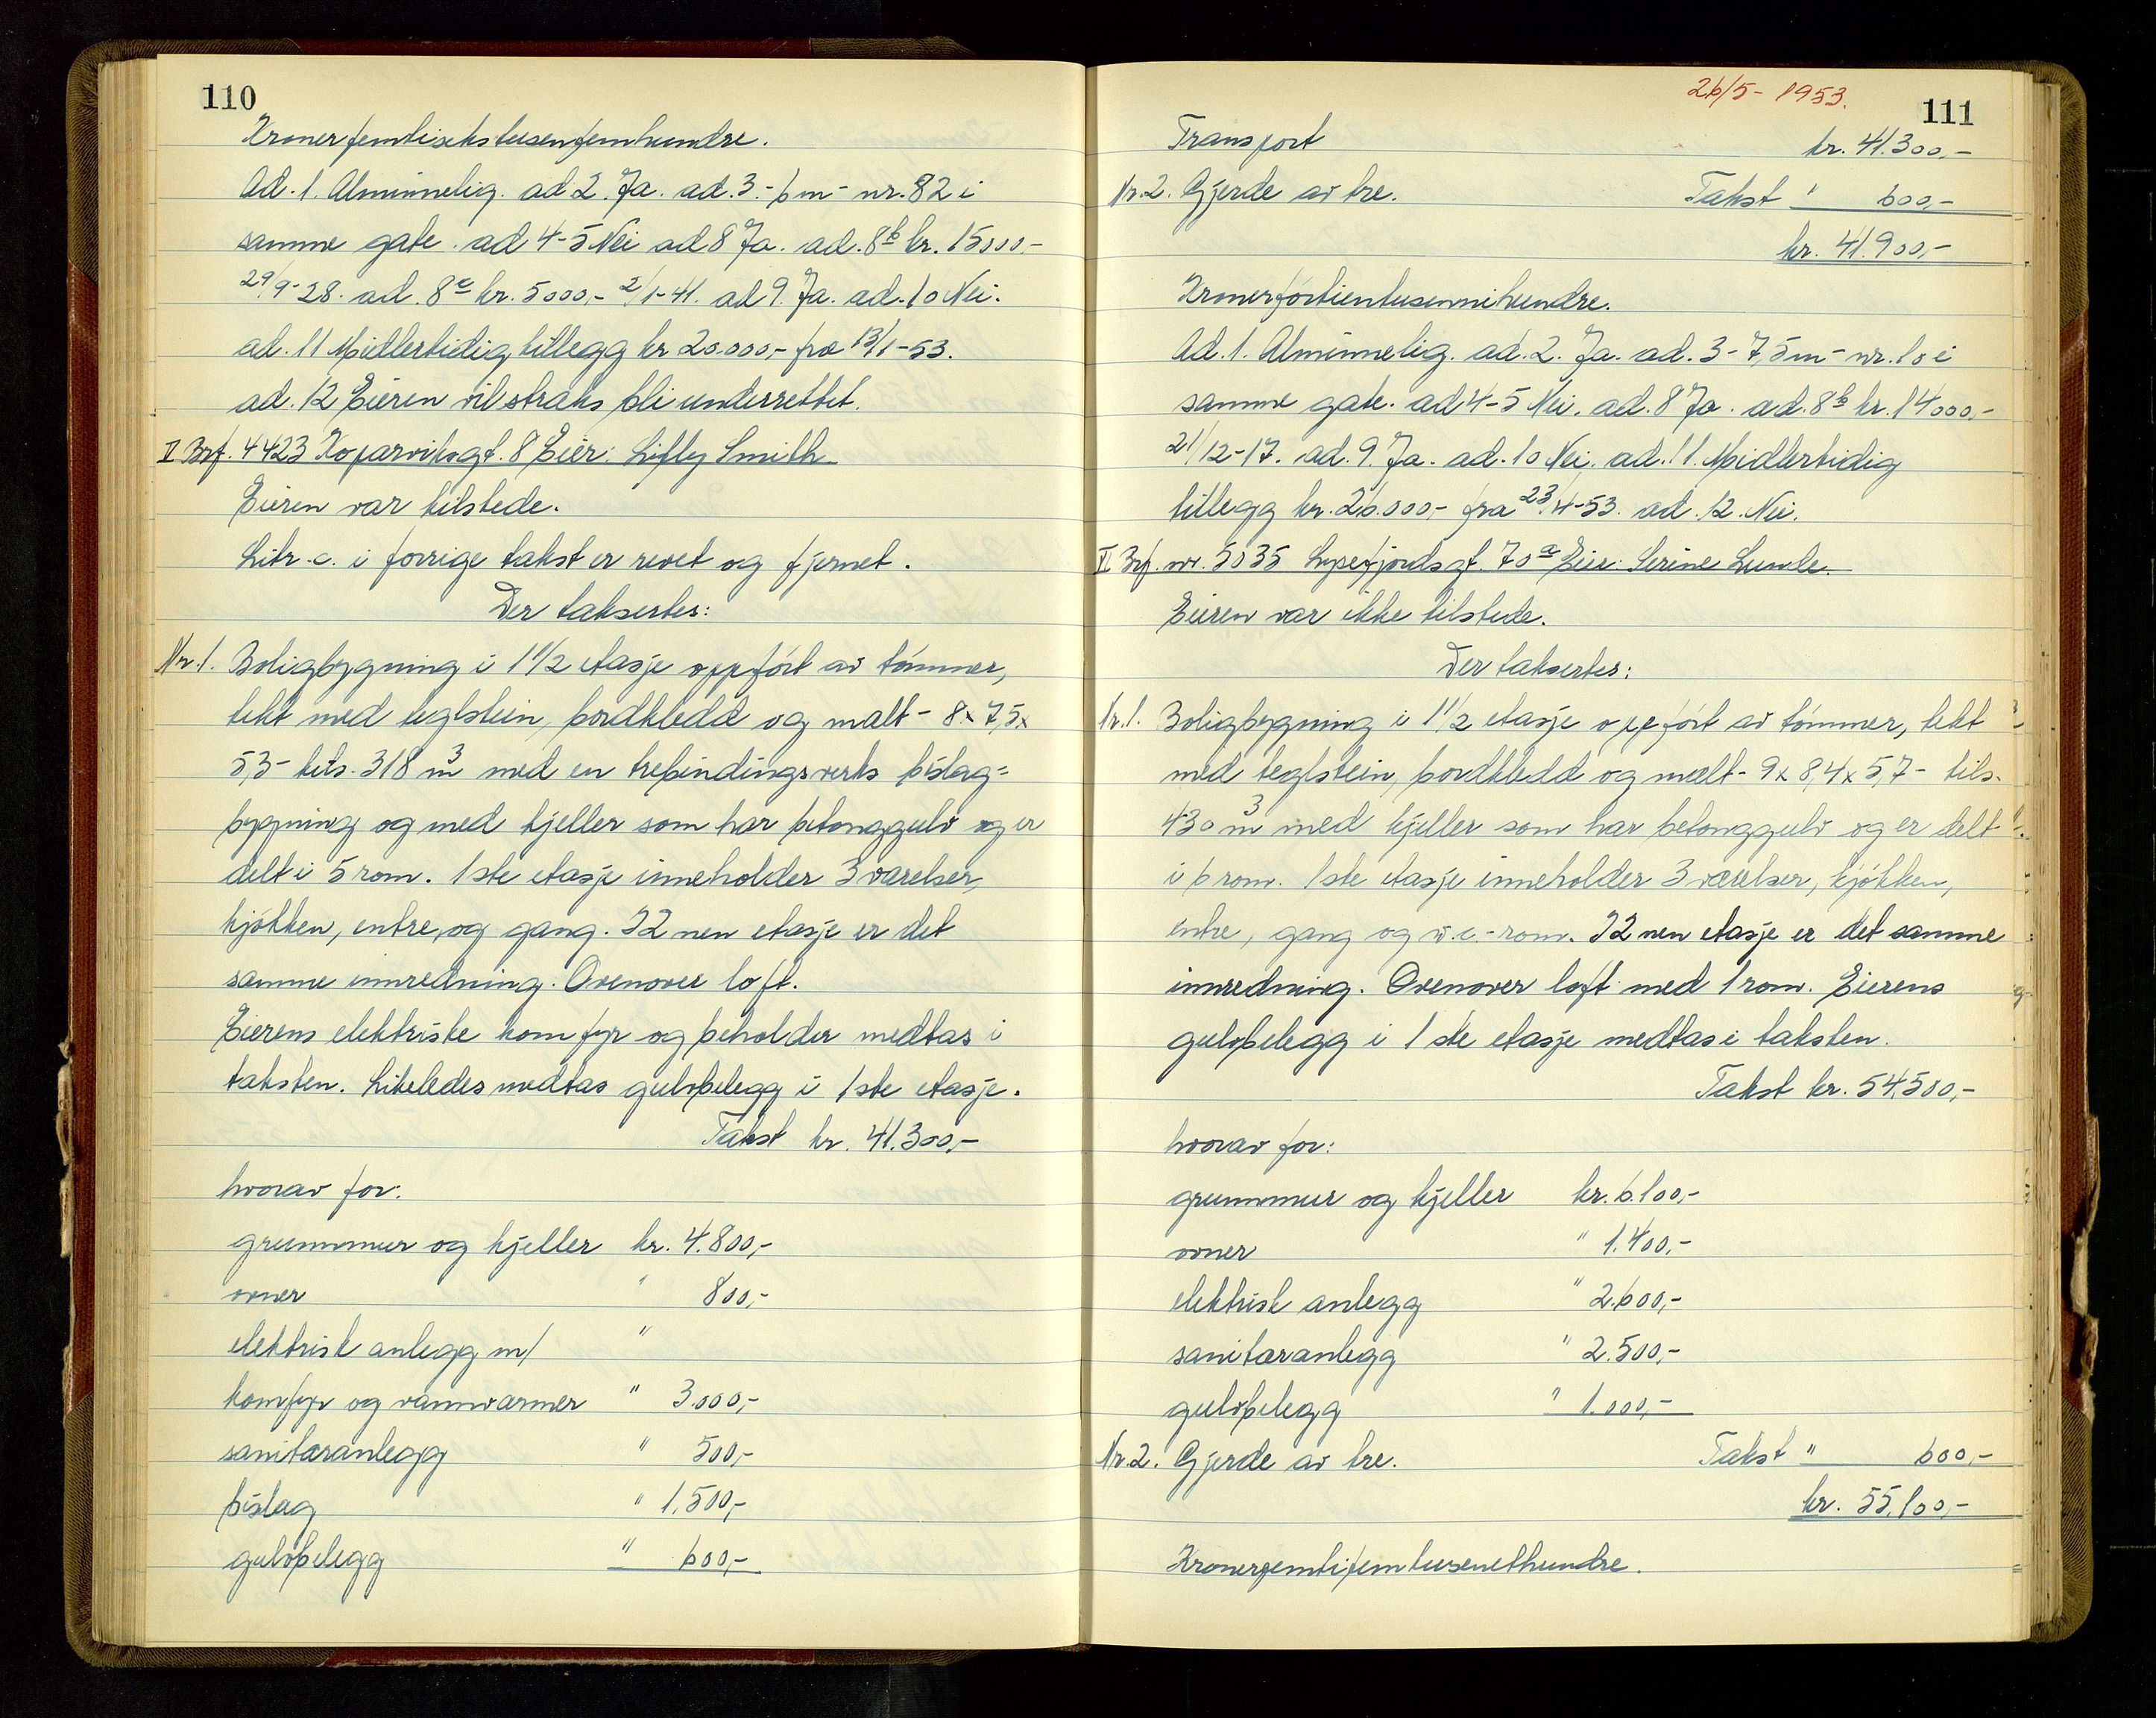 110
Kroner femtisekstusenfemhundre.
Ad. 1. Alminnelig. ad 2. Ja. ad. 3.- 6 m - nr. 82 i
samme gate. ad 4-5 Nei ad 8 Ja. ad. 8b kr. 15000.-
29/9-28. ad. 8c kr. 5000,- 2/1-41. ad 9. Ja. ad. 10 Nei.
ad. 11 Midlertidig tillegg kr 20.000,- fra 13/1-53.
ad. 12 Eieren vil straks bli underrettet.
V Brf. 4423 Koparviksgt. 8 Eier: Lifly Smith
Eieren var tilstede.
Litr. c. i forrige takst er revet og fjernet.
Der taksertes:
Nr. 1. Boligbygning i 1 1/2 etasje oppført av tømmer,
tekt med teglstein, bordkledd og malt - 8 x 7,5 x
5,3 - tils. 318 m3 med en trebindingsverks bislag=
bygning og med kjeller som har betonggulv og er
delt i 5 rom. 1ste etasje inneholder 3 værelser,
kjøkken, entre, og gang. I 2nen etasje er det
samme innredning. Ovenover loft.
Eierens elektriske komfyr og beholder medtas i
taksten. Likeledes medtas gulvbelegg i 1ste etasje.
Takst kr. 41.300,-
hvorav for:
grunnmur og kjeller kr. 4.800,-
ovner " 800,-
elektrisk anlegg m/ "
komfyr og vannvarmer " 3.000,-
sanitæranlegg " 500,-
bislag " 1.500,-
gulvbelegg " 600,-
26/5- 1953.
111
Transport kr. 41.300,-
Nr. 2. Gjerde av tre. Takst " 600,-
kr. 41.900,-
Kroner førtientusennihundre.
Ad. 1. Alminnelig. ad. 2. Ja. ad. 3 - 7,5 m - nr. 10 i
samme gate. ad 4-5 Nei. ad. 8 Ja. ad. 8b kr. 14000.-
21/12-17. ad. 9. Ja. ad. 10 Nei. ad. 11. Midlertidig
tillegg kr. 26.000,- fra 23/4-53. ad. 12. Nei.
VI Brf. nr. 5035 Lysefjordsgt. 70a Eier: Serine Lunde.
Eieren var ikke tilstede.
Der taksertes:
Nr. 1. Boligbygning i 1 1/2 etasje oppført av tømmer, tekt
med teglstein, bordkledd og malt - 9 x 8,4 x 5,7 - tils.
430 m3 med kjeller som har betonggulv og er delt
i 6 rom. 1ste etasje inneholder 3 værelser, kjøkken,
entre, gang og w.c.-rom. I 2nen etasje er det samme
innredning. Ovenover loft med 1 rom. Eierens
gulvbelegg i 1ste etasje medtas i taksten.
Takst kr. 54.500,-
hvorav for:
grunnmur og kjeller kr. 6.100,-
ovner " 1.400,-
elektrisk anlegg " 2.600,-
sanitæranlegg " 2.500,-
gulvbelegg " 1.000,-
Nr. 2. Gjerde av tre. Takst " 600,-
kr. 55.100,-
Kroner femtifemtusenethundre.